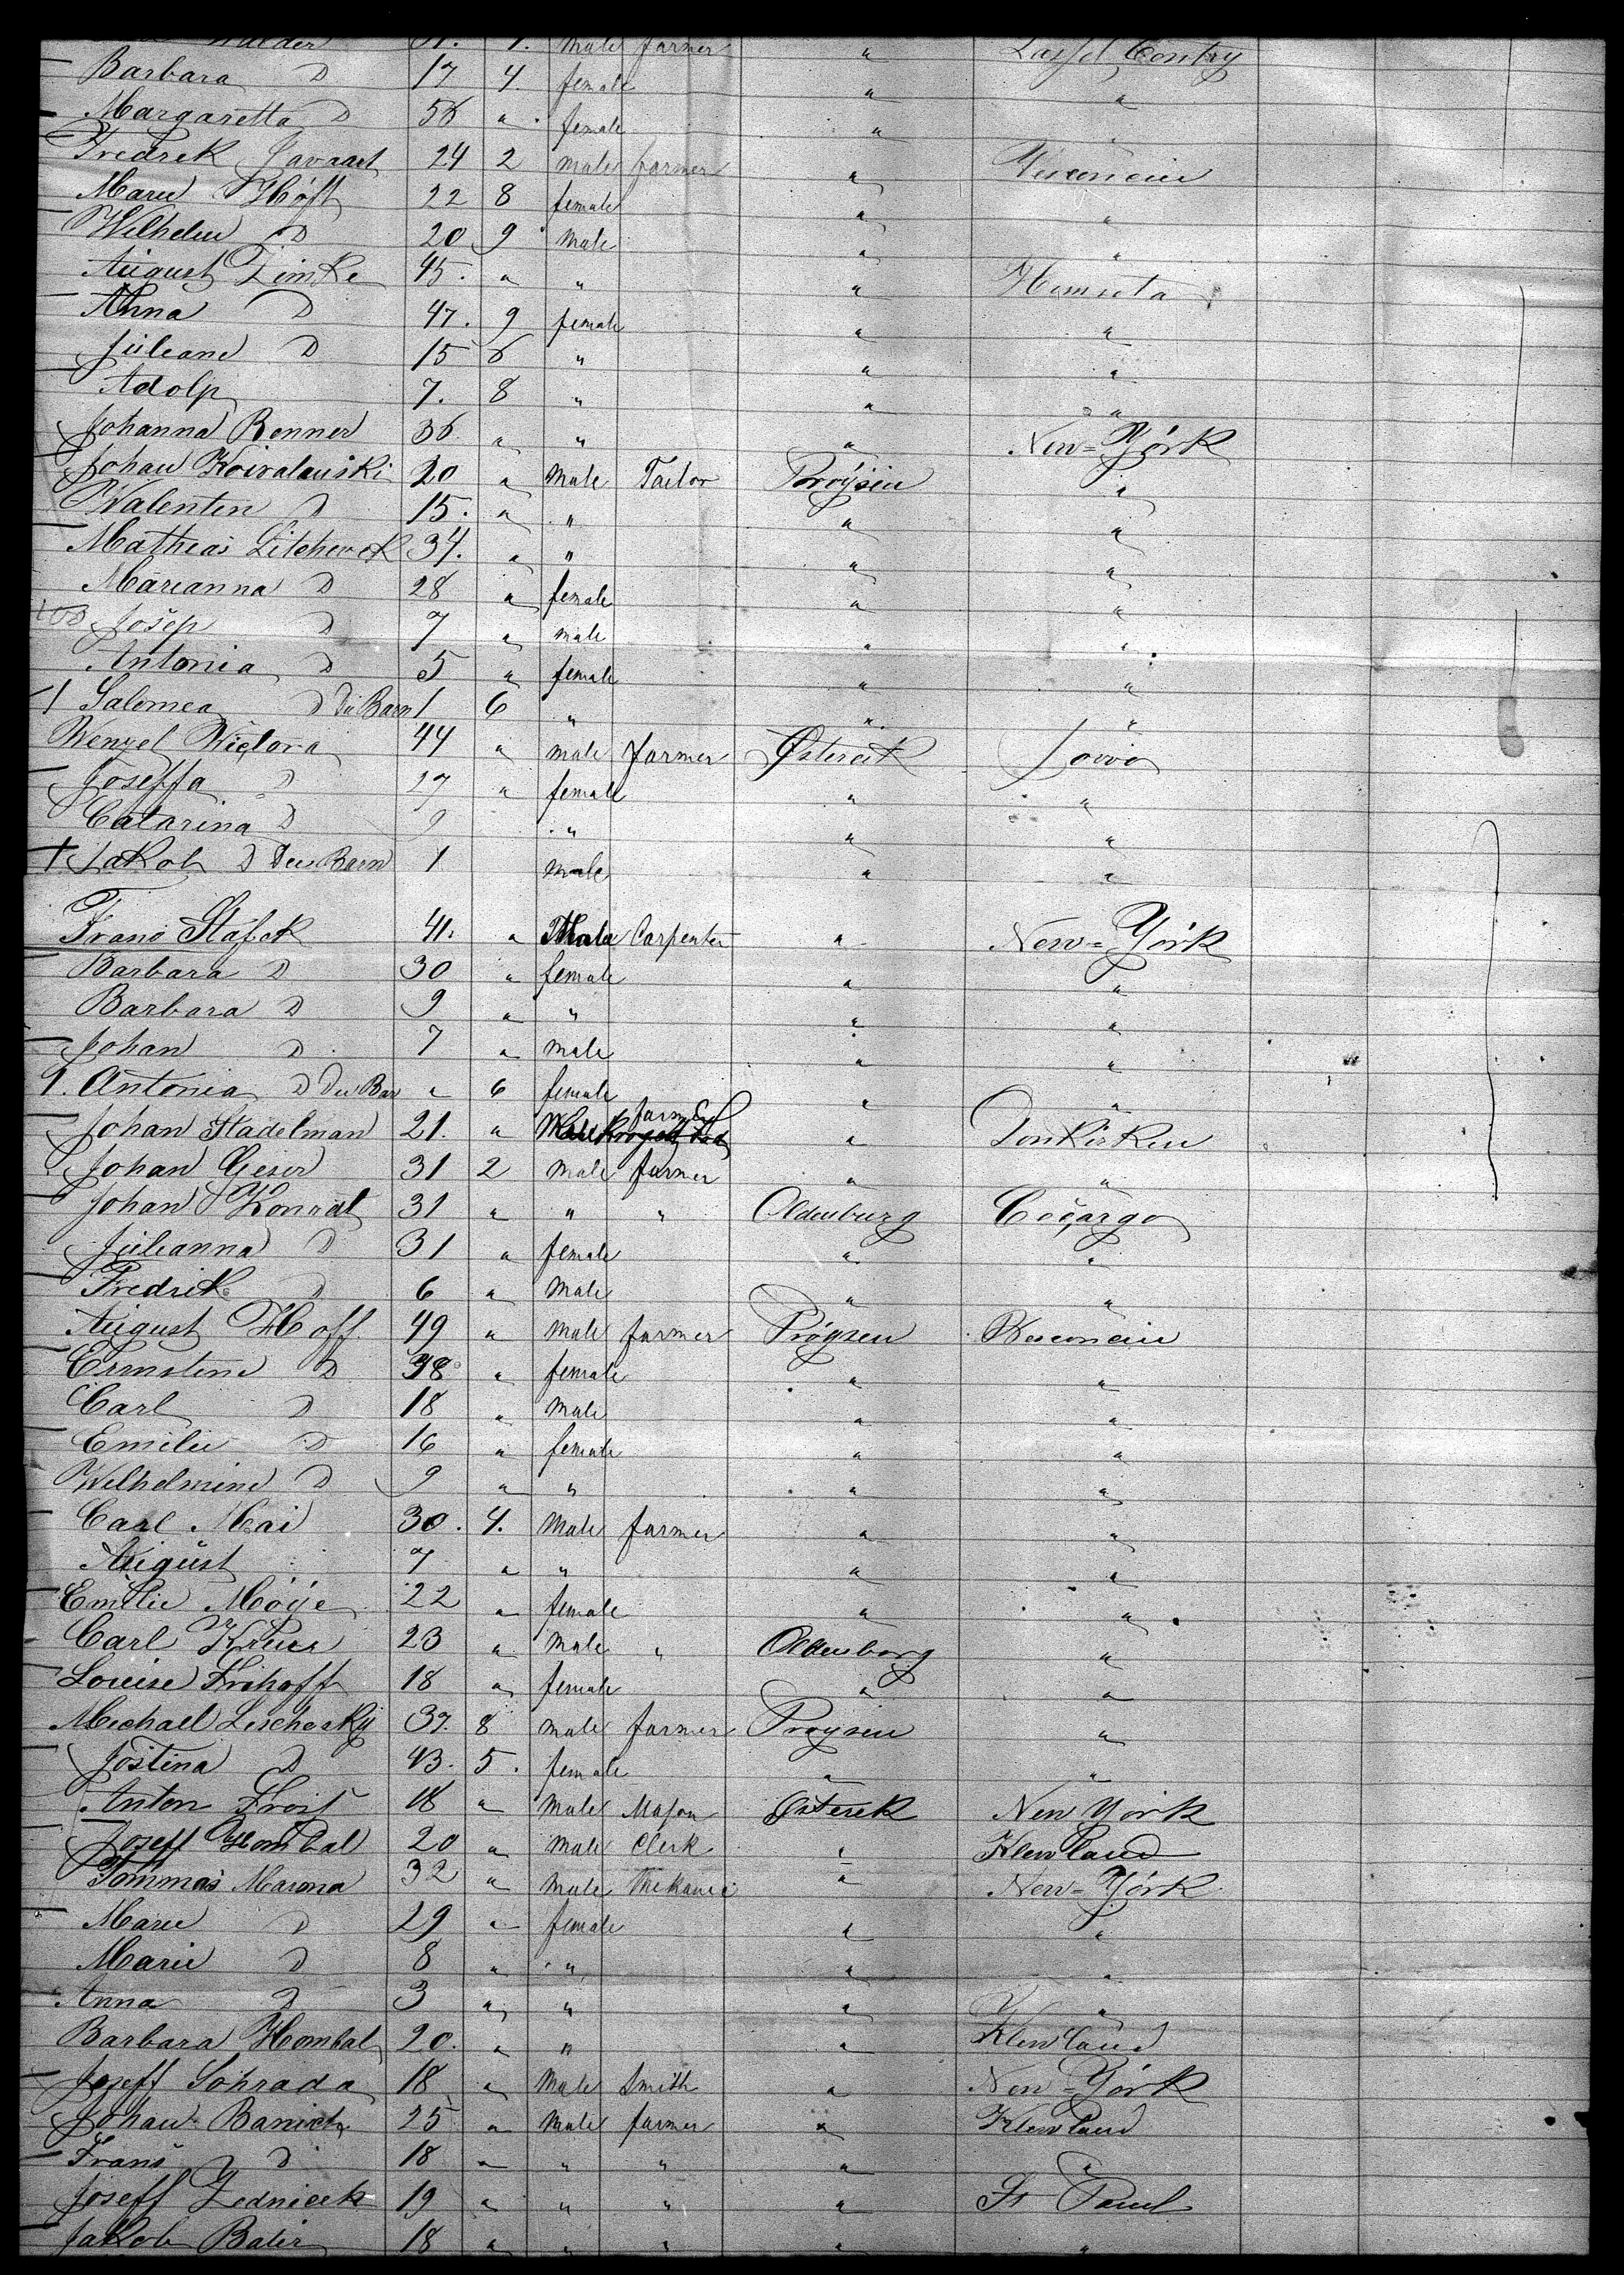 Mulder 31. 1. male farmer " Cassel Contry
Barbara D 17 4. female " "
Margaretta D 56 " female " "
Fredrek 24 2 male farmer " Visconcin
Marie Höft 22 8 female " "
Wilhelm D 20 9 male " "
August Zimke 45. " " " Himsota
Anna D 47. 9 female " "
Juleane D 15 6 " " "
Adolp 7. 8 " " "
Johanna Renner 36. " " " New=York
Johan Koiralauski 20 " male Tailor Pröysin "
Walenten D 15. " " " "
Mathias 34. " " " "
Marianna D 28 " female " "
Josep D 7 " male " "
Antonia D 5 " female " "
1 Salomea D Di Barn 1 6 " " "
Wenzel Wictora 44 " male farmer Østereik Jowa
Joseffa D 27 " female " "
Catarina D 9 " " "
1 Jakob D Die Barn 1 male " "
Frans Stafek 41. " Male Carpenter " New=York
Barbara D 30 " female " "
Barbara D 9 " " " "
Johan D 7 " male " "
1. Antonia D Die Bar " 6 female " "
Johan Stadelman 21. " farmer " Donkirken
Johan Geser 31 2 male farmer " "
Johan Konrat 31 " " " Oldenburg Cocargo
Juleanna D 31 " female " "
Fredrik D 6 " male " "
August Hoff 49 " male farmer Pröysen Wesconcin
Ernstine D 38 " female " "
Carl D 18 " male " "
Emilie D 16 " female " "
Welhelmine D 9 " " " "
Carl Mai 30. 4. male farmer " "
August 7 " " " "
Emilie Möye 22 " female " "
Carl Kruer 23 " male " Oldenborg "
Louise Frihoff 18 " female " "
Mechael Leschosky 37. 8 male farmer Proysin "
Jostina D 43. 5. female " "
Anton Frost 18 " male Mason Østerek New York
Joseff Hombal 20 " male Clerk " Klewland
Tommas Marona 32 " male Mekanic " New=York
Marie D 29 " female " "
Marie D 8 " " " "
Anna D 3 " " " "
Barbara Hombal 20. " " " Klewland
Joseff Sohrada 18 " male Smith " New=York
Johan Banich 25 " male farmer " Klewland
Frans D 18 " " " " "
Joseff Zednicek 19 " " " " St Paul
Jakob Baler 18 " " " " "